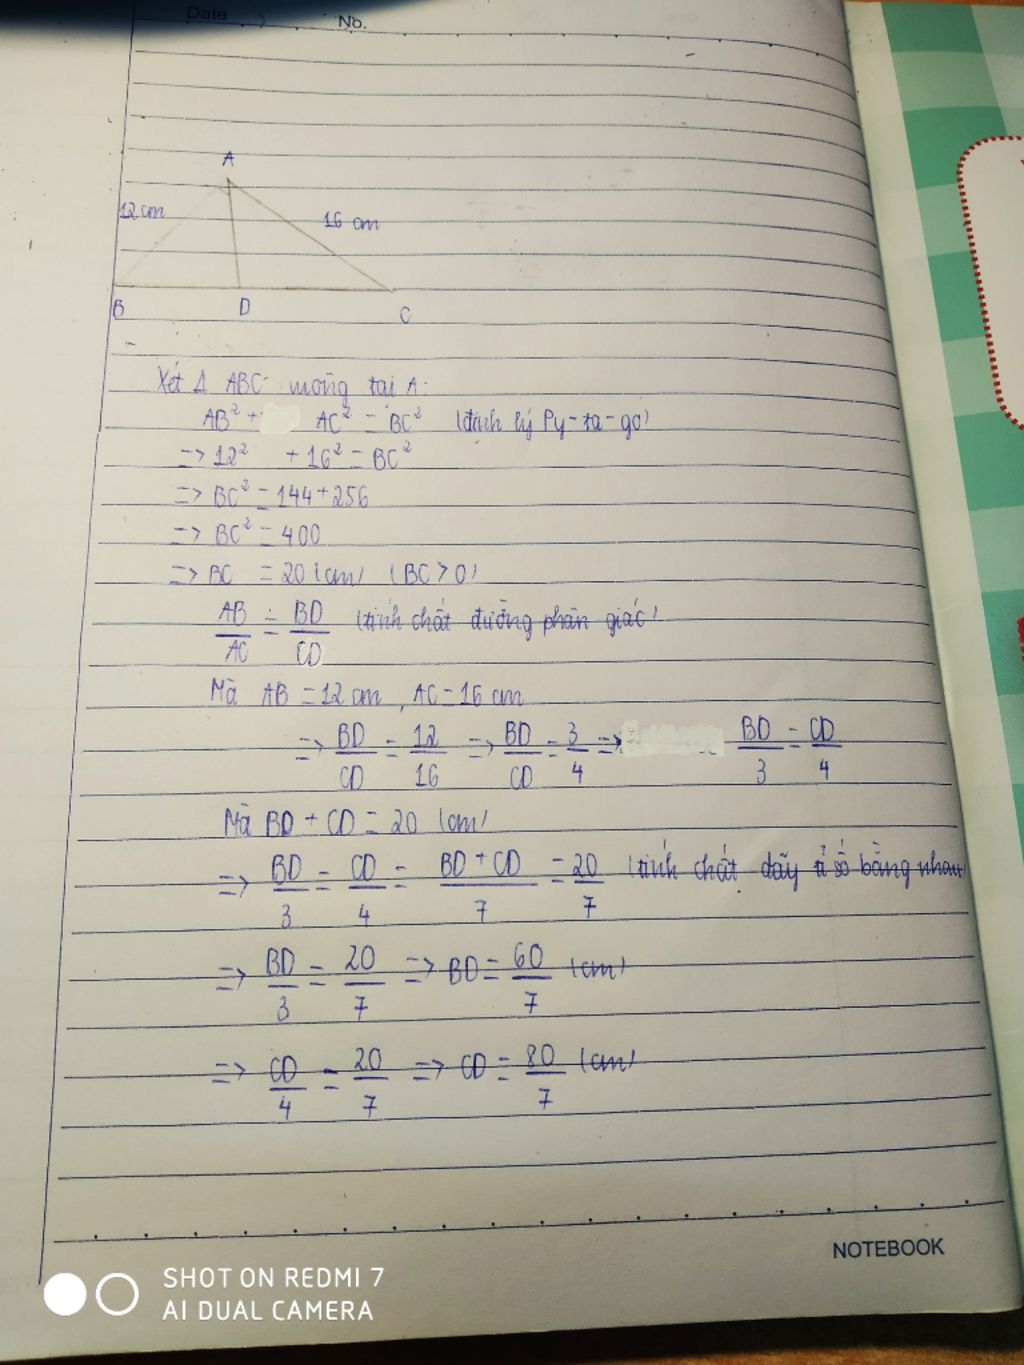 Date
No.
A
12 cm
16 cm
B D C
Xét Δ ABC vuông tại A:
AB² + AC² = BC² (định lý Py-ta-go)
=> 12² + 16² = BC²
=> BC² = 144 + 256
=> BC² = 400
=> BC = 20 (cm) (BC > 0)
AB/AC = BD/CD (tính chất đường phân giác)
Mà AB = 12 cm, AC = 16 cm
=> BD/CD = 12/16 => BD/CD = 3/4 => BD/3 = CD/4
Mà BD + CD = 20 (cm)
=> BD/3 = CD/4 = BD + CD/7 = 20/7 (tính chất dãy tỉ số bằng nhau)
=> BD/3 = 20/7 => BD = 60/7 (cm)
=> CD/4 = 20/7 => CD = 80/7 (cm)
NOTEBOOK
SHOT ON REDMI 7
AI DUAL CAMERA